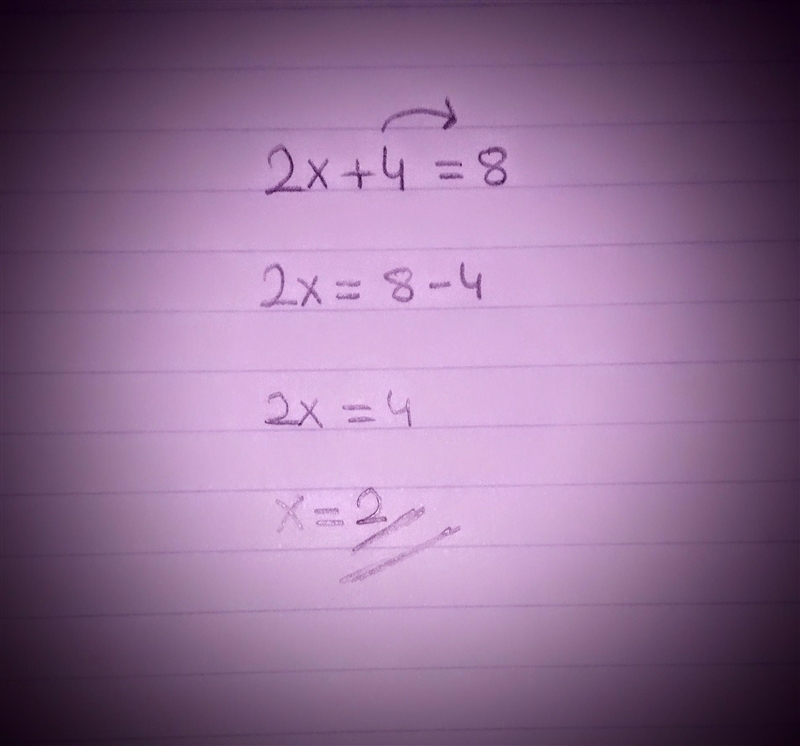 2x+4=8
2x=8-4
2x=4
x=2